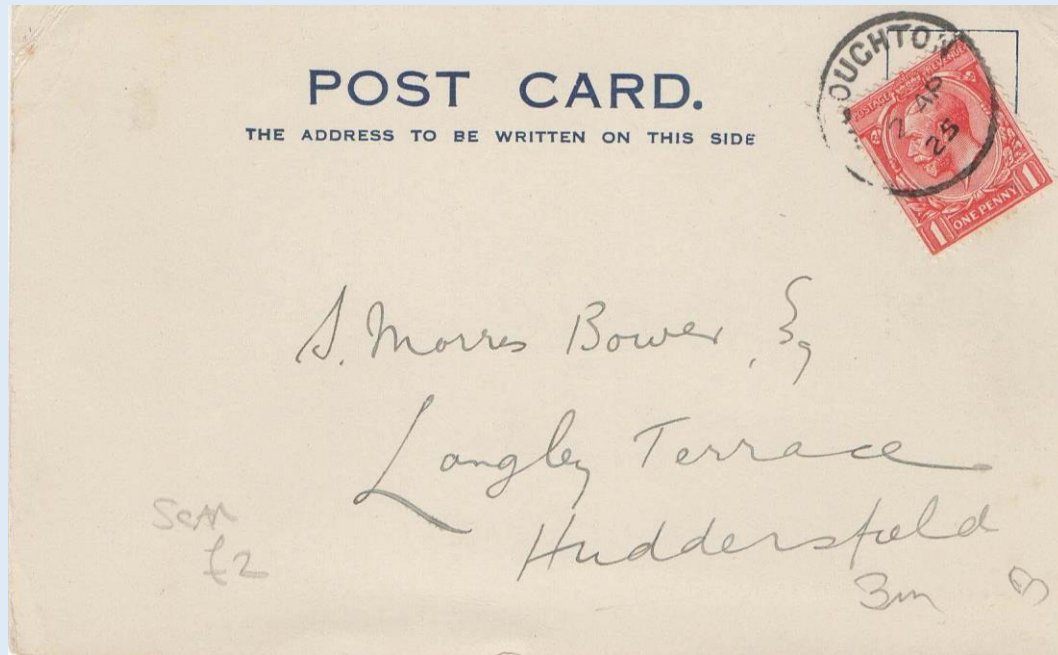 POST CARD.
THE ADDRESS TO BE WRITTEN ON THIS SIDE
OUGHTON
2 AP
25
POSTAGE REVENUE
1 ONE PENNY 1
S. Morris Bower, Esq
Langley Terrace
Huddersfield
£2